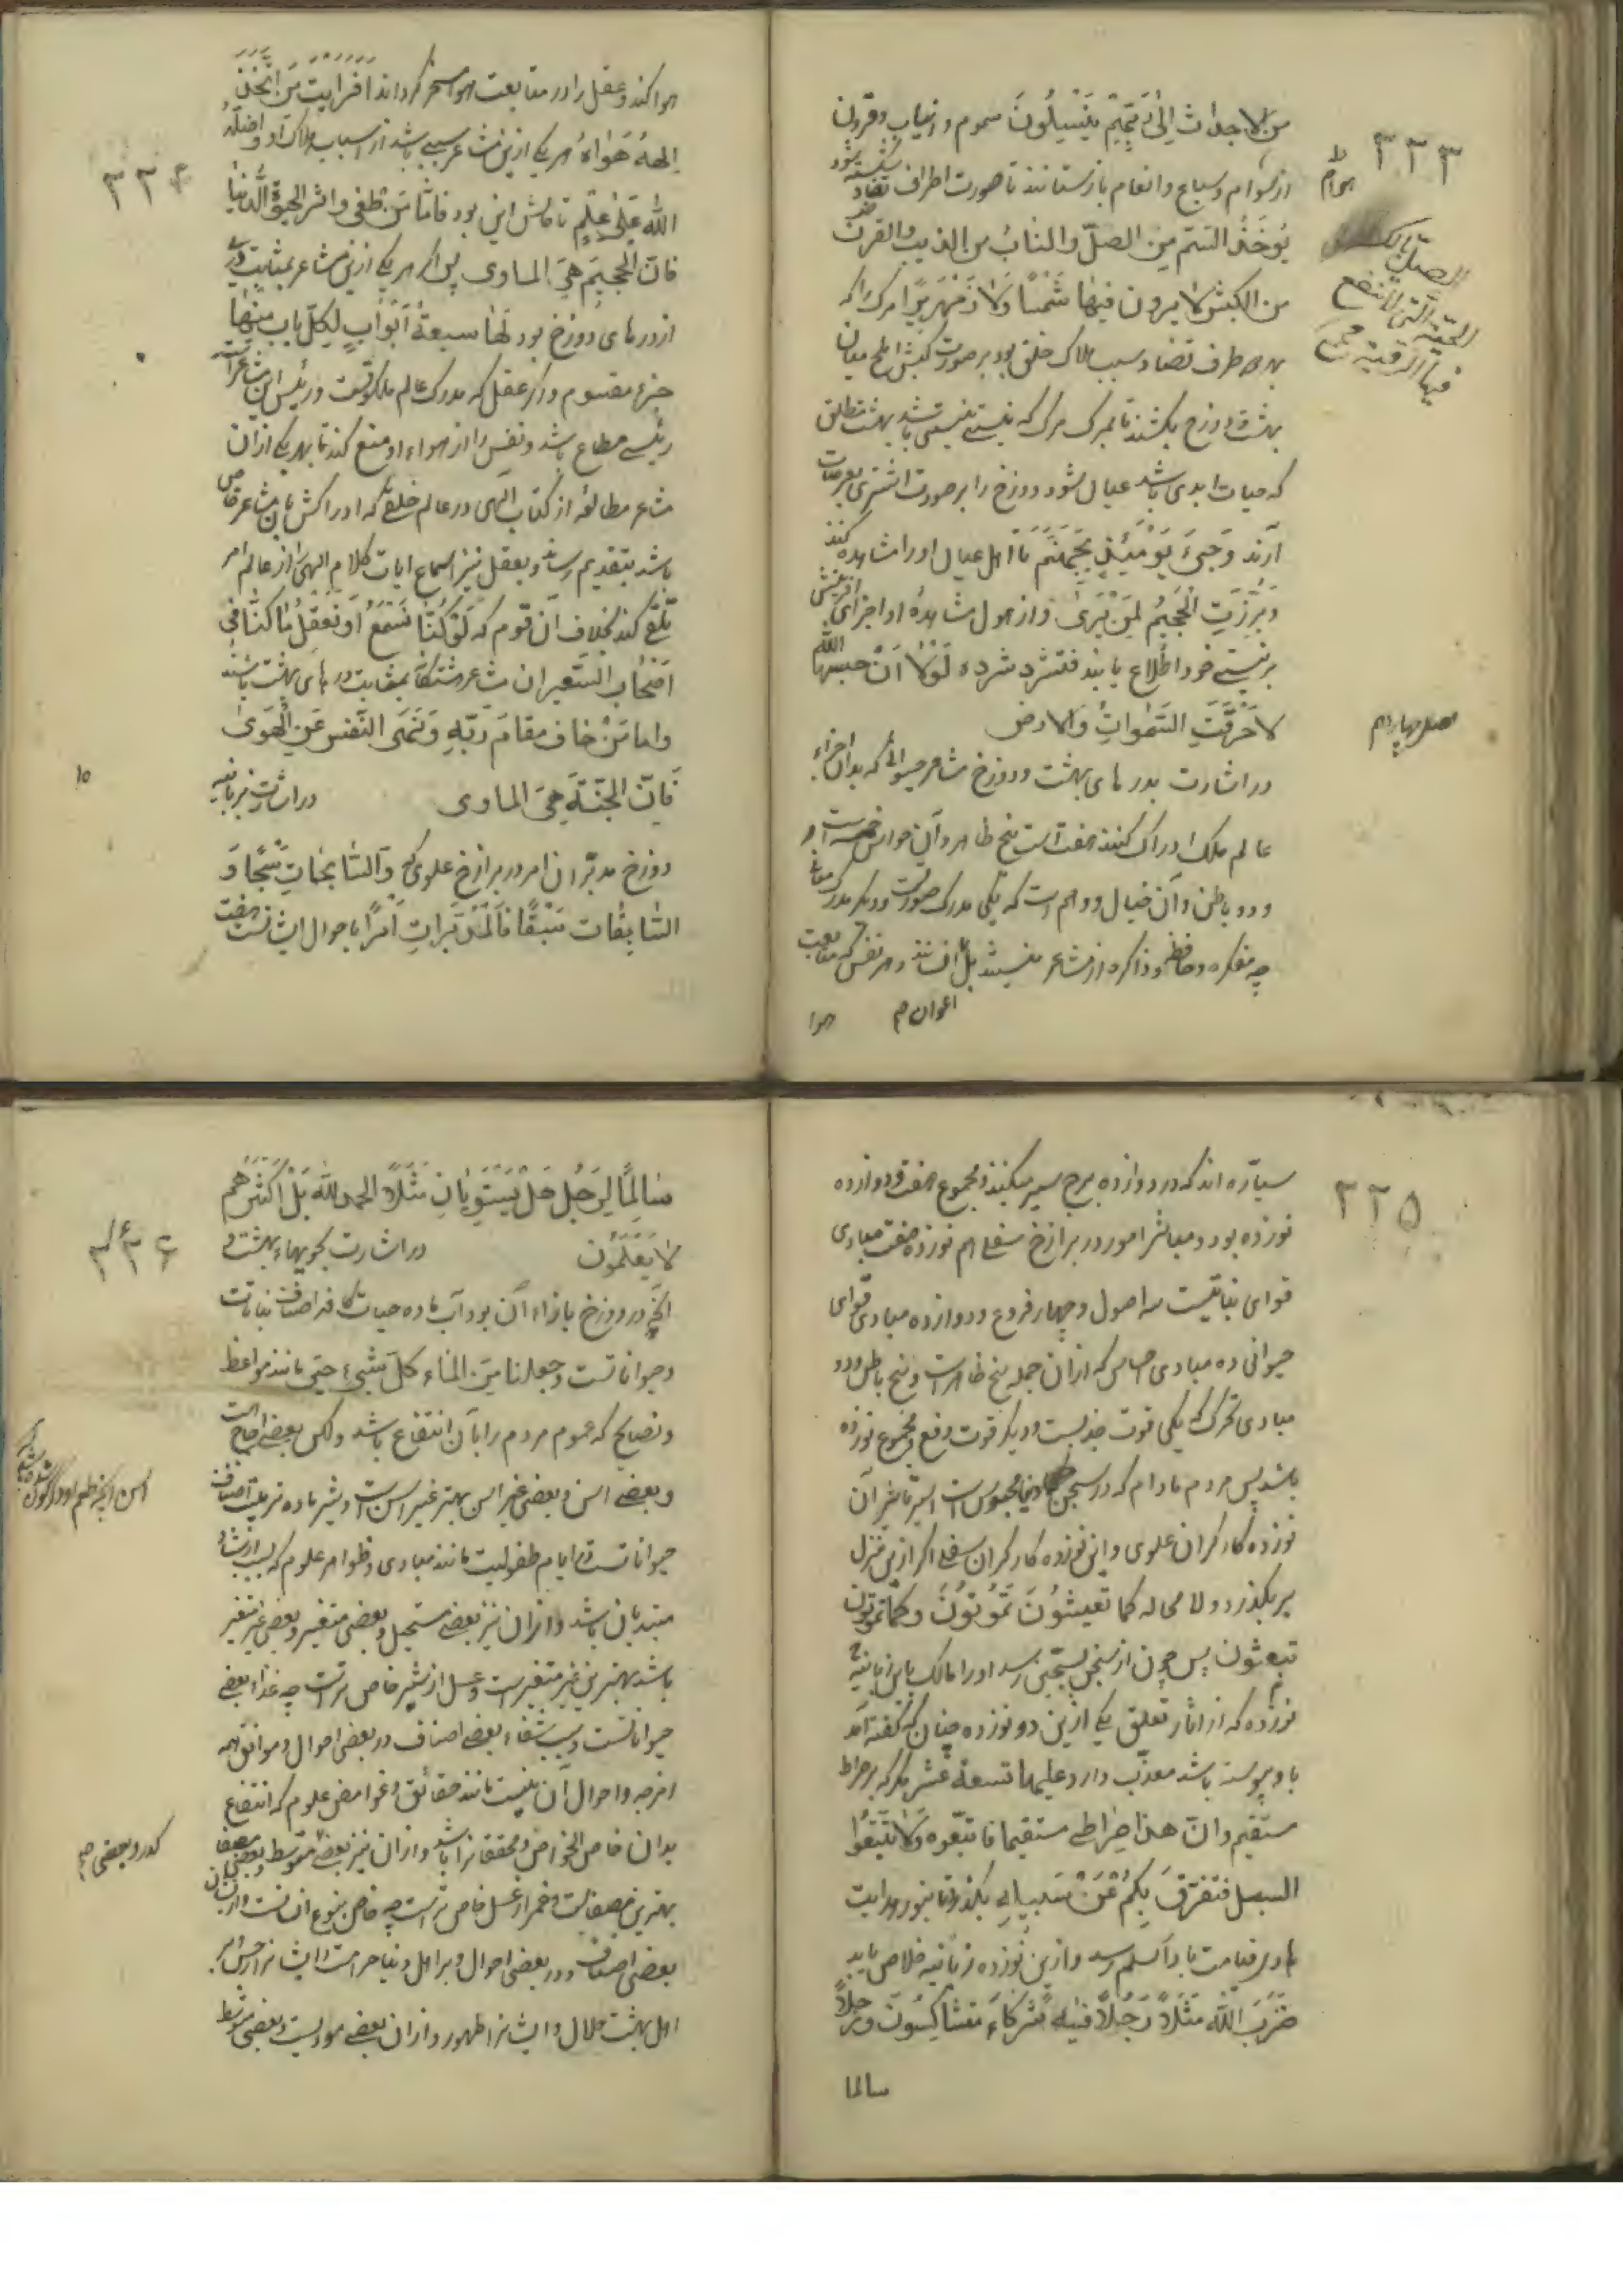 ۳۳۳
من الاجداث الی ربهم ینسلون سموم و انیاب و قرون
از هوام و سباع و انعام بازستانند تا صورت اطراف تضاد شکسته شود
یوخذ السم من الصل و الناب من الذیب و القرن
من الکبش لا یرون فیها شمسا و لا زمهریرا مرک را که
بهر دو طرف تضاد و سبب هلاک خلق بود بر صورت کبش املح میان
بهشت و دوزخ بکشند تا بمرک مرک که نیستی نیستی باشد بهشت مطلق
که حیات ابدی باشد عیان شود و دوزخ را بر صورت اشتری بعرصات
آرند و جیء یومئذ بجهنم تا اهل عیان او را مشاهده کنند
و برزت الجحیم لمن یری و از هول مشاهده او اجزای آفرینش
بر نیستی خود اطلاع یابند فتشرد شردة لولا ان حبسها الله
لاحرقت السموات و الارض
در اشارت بدرهای بهشت و دوزخ مشاعر حیوانی که بدان اجزاء
عالم ملک ادراک کنند هفت است پنج ظاهر و آن حواس خمسه است و
و دو باطن و آن خیال و وهم است که یکی مدرک صورت و دیکر مدرک معانی
چه مفکره و حافظه و ذاکره از مشاعر نیستند بل اعوان ایشانند و هر نفس که متابعت
اعوان صح
هوا
هوام
الصل بالکسر
الحیة التی لا تنفع
فیها الرقیة
فصل چهاردهم
۳۳۴
هوا کند و عقل را در متابعت هوا مسخر کرداند افرایت من اتخذ
الهه هواه هر یکی ازین مشاعر سببی باشد از اسباب هلاک او و اضله
الله علی علم تا حالش این بود فاما من طغی و اثر الحیوة الدنیا
فان الجحیم هی الماوی پس هر یکی ازین مشاعر بمثابت دری
از درهای دوزخ بود لها سبعة ابواب لکل باب منها
جزء مقسوم و اکر عقل که مدرک عالم ملکوتست و رئیس این مشاعر است
رئیس مطاع باشد و نفس را از هواء او منع کند تا بهر یکی از آن
مشاعر مطالعه از کتاب الهی در عالم خلق که ادراکش بآن مشاعر خاص
باشد بتقدیم رساند و بعقل نیز اسماع ایات کلام الهی از عالم امر
تلقی کند بخلاف آن قوم که لو کنا نسمع او نعقل ما کنا فی
اصحاب السعیر ان مشاعر هشتگانه بمثابت درهای بهشت باشند
و اما من خاف مقام ربه و نهی النفس عن الهوی
فان الجنة هی الماوی
در اشارت بزبانیه
دوزخ مدبران امور در برازخ علوی که و السابحات سبحا و
السابقات سبقا فالمدبرات امرا باحوال ایشانست هفت
۱۵
۳۳۵
سیاره اند که در دوازده برج سیر میکنند و مجموع هفت و دوازده
نوزده بود و مباشر امور در برازخ سفلی هم نوزده هفت مبادی
قوای نباتیست سه اصول و چهار فروع و دوازده مبادی قوای
حیوانی ده مبادی احساس که از آن جمله پنج ظاهر است و پنج باطن و دو
مبادی تحریک یکی قوت جذبست و دیکر قوت دفع و مجموع نوزده
باشد پس مردم مادام که در سجن دنیا محبوس است اسیر تاثیر آن
نوزده کارکران علوی و این نوزده کارکران سفلی اکر ازین منزل
بر نکذرد و لا محاله کما تعیشون تموتون و کما تموتون
تبعثون پس چون از سجن بسجین رسد او را مالک باین زبانیه
نوزده که از اثار تعلق یکی ازین دو نوزده چنان که کفته آمد
باو پیوسته باشد معذب دارد علیها تسعة عشر مکر که بر صراط
مستقیم و ان هذا صراطی مستقیما فاتبعوه و لا تتبعوا
السبل فتفرق بکم عن سبیله بکذرد تا بنور هدایت
هادی قیامت بادار السلم رسد و ازین نوزده زبانیه خلاص یابد
ضرب الله مثلا رجلا فیه شرکاء متشاکسون و رجلا
سالما
۳۳۶
سالما لرجل هل یستویان مثلا الحمد لله بل اکثرهم
لا یعلمون
در اشارت بجویهاء بهشت و
آنچه در دوزخ بازاء آن بود آب ماده حیات کافه اصناف نباتات
و حیواناتست و جعلنا من الماء کل شیء حی مانند مواعظ
و نصایح که عموم مردم را بآن انتفاع باشد و لکن بعضی اجاج است
و بعضی اسن و بعضی غیر اسن بهتر غیر اسن است و شیر ماده تربیت اصناف
حیواناتست در ایام طفولیت مانند مبادی و ظواهر علوم که سبب ارشاد
مبتدیان باشد و از آن نیز بعضی مستحیل و بعضی متغیر و بعضی غیر متغیر
باشد بهترین غیر متغیر است و عسل از شیر خاص تر است چه غذاء بعضی
حیواناتست و سبب شفاء بعضی اصناف در بعضی احوال و موافق همه
امزجه و احوال آن نیست مانند حقائق و غوامض علوم که انتفاع
بدان خاص الخواص و محققانرا باشد و از آن نیز بعضی متوسط و بعضی مصفا
بهترین مصفا است و خمر از عسل خاص تر است چه خاص بنوع انسانست و از ایشان
بعضی اصناف و در بعضی احوال و بر اهل دنیا حرامست و ایشانرا رجس و بر
اهل بهشت حلال و ایشانرا طهور و از آن بعضی موذیست و بعضی متوسط
کدر و بعضی صح